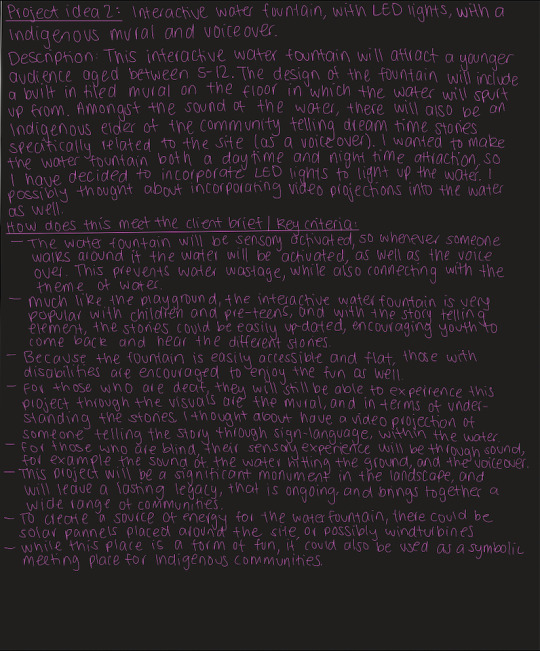 Project idea 2: Interactive water fountain, with LED lights, with a
Indigenous mural and voiceover.
Description: This interactive water fountain will attract a younger
audience aged between 5-12. The design of the fountain will include
a built in tiled mural on the floor in which the water will spurt
up from. Amongst the sound of the water, there will also be an
Indigenous elder of the community telling dream time stories
specifically related to the site (as a voiceover). I wanted to make
the water fountain both a daytime and night time attraction, so
I have decided to incorporate LED lights to light up the water. I
possibly thought about incorporating video projections into the water
as well.
How does this meet the client brief / key criteria:
- The water fountain will be sensory activated, so whenever someone
walks around it the water will be activated, as well as the voice
over. This prevents water wastage, while also connecting with the
theme of water.
- Much like the playground, the interactive water fountain is very
popular with children and pre-teens, and with the story telling
element, the stories could be easily up-dated, encouraging youth to
come back and hear the different stories.
- Because the fountain is easily accessible and flat, those with
disabilities are encouraged to enjoy the fun as well.
- For those who are deaf, they will still be able to experience this
project through the visuals are the mural, and in terms of under-
standing the stories I thought about have a video projection of
someone telling the story through sign-language, within the water
- For those who are blind, their sensory experience will be through sound,
for example the sound of the water hitting the ground, and the voiceover.
- This project will be a significant monument in the landscape, and
will leave a lasting legacy, that is ongoing and brings together a
wide range of communities.
- To create a source of energy for the waterfountain, there could be
solar pannels placed around the site, or possibly windturbines
- While this place is a form of fun, it could also be used as a symbolic
meeting place for Indigenous communities.